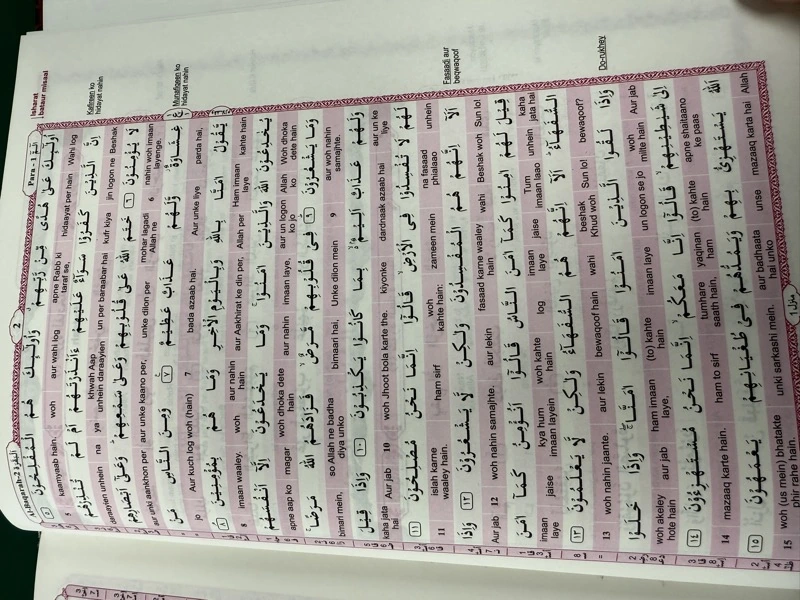 Al-Baqarah-2 البقرة ٢
2
Para - 1 الٓمّٓ ١
اُولٰٓئِكَ عَلٰى هُدًى مِّنْ رَّبِّهِمْ ۙ وَاُولٰٓئِكَ هُمُ الْمُفْلِحُوْنَ ٥
5 kaamyaab hain. woh aur wahi log apne Rabb ki taraf se, hidaayat per hain Wahi log
اِنَّ الَّذِيْنَ كَفَرُوْا سَوَآءٌ عَلَيْهِمْ ءَاَنْذَرْتَهُمْ اَمْ لَمْ تُنْذِرْهُمْ
daraayien unhein na ya khwah Aap unhein daraayien un per baraabar hai kufr kiya jin logon ne Beshak
لَا يُؤْمِنُوْنَ ٦ خَتَمَ اللّٰهُ عَلٰى قُلُوْبِهِمْ وَعَلٰى سَمْعِهِمْ ؕ وَعَلٰٓى اَبْصَارِهِمْ
aur unki aankhon per, aur unke kaano per, unke dilon per mohar lagadi Allah ne 6 nahin woh imaan layenge.
غِشَاوَةٌ ۫ وَّلَهُمْ عَذَابٌ عَظِيْمٌ ٧ وَمِنَ النَّاسِ مَنْ
jo Aur kuch log woh (hain) 7 bada azaab hai. Aur unke liye parda hai,
يَّقُوْلُ اٰمَنَّا بِاللّٰهِ وَبِالْيَوْمِ الْاٰخِرِ وَمَا هُمْ بِمُؤْمِنِيْنَ ٨
8 imaan waaley. woh aur nahin hain aur Aakhirat ke din per, Allah per Ham imaan laaye kahte hain
يُخٰدِعُوْنَ اللّٰهَ وَالَّذِيْنَ اٰمَنُوْا ۚ وَمَا يَخْدَعُوْنَ اِلَّآ اَنْفُسَهُمْ
apne aap ko magar woh dhoka dete hain aur nahin imaan laye, aur un logon ko jo Allah ko Woh dhoka dete hain
وَمَا يَشْعُرُوْنَ ٩ فِيْ قُلُوْبِهِمْ مَّرَضٌ ۙ فَزَادَهُمُ اللّٰهُ مَرَضًا ۚ
bimari mein, so Allah ne badha diya unko bimaari hai, Unke dilon mein 9 aur woh nahin samajhte.
وَلَهُمْ عَذَابٌ اَلِيْمٌ ۢ بِمَا كَانُوْا يَكْذِبُوْنَ ١٠ وَاِذَا قِيْلَ
kaha jata hai Aur jab 10 woh Jhoot bola karte the. kiyonke dardnaak azaab hai aur un ke liye
لَهُمْ لَا تُفْسِدُوْا فِى الْاَرْضِ ۙ قَالُوْٓا اِنَّمَا نَحْنُ مُصْلِحُوْنَ ١١
11 islah karne waaley hain. ham sirf woh kahte hain: zameen mein na fasaad phialaao unhein
اَلَآ اِنَّهُمْ هُمُ الْمُفْسِدُوْنَ وَلٰكِنْ لَّا يَشْعُرُوْنَ ١٢ وَاِذَا
Aur jab 12 woh nahin samajhte. aur lekin fasaad karne waaley wahi Beshak woh Sun lo!
قِيْلَ لَهُمْ اٰمِنُوْا كَمَآ اٰمَنَ النَّاسُ قَالُوْٓا اَنُؤْمِنُ كَمَآ اٰمَنَ
imaan laye jaise kya hum imaan layein woh kahte hain log imaan laye jaise Tum imaan laao unhein kaha jata hai
السُّفَهَآءُ ؕ اَلَآ اِنَّهُمْ هُمُ السُّفَهَآءُ وَلٰكِنْ لَّا يَعْلَمُوْنَ ١٣
13 woh nahin jaante. aur lekin bewaqoof hain wahi beshak Khud woh Sun lo! bewaqoof?
وَاِذَا لَقُوا الَّذِيْنَ اٰمَنُوْا قَالُوْٓا اٰمَنَّا ۚ وَاِذَا خَلَوْا
woh akeley hote hain aur jab ham imaan laye, (to) kahte hain imaan laye un logon se jo woh milte hain Aur jab
اِلٰى شَيٰطِيْنِهِمْ ۙ قَالُوْٓا اِنَّا مَعَكُمْ ۙ اِنَّمَا نَحْنُ مُسْتَهْزِءُوْنَ ١٤
14 mazaaq karte hain. ham to sirf tumhare saath hain, yaqinan ham (to) kahte hain apne shaitaano ke paas
اَللّٰهُ يَسْتَهْزِئُ بِهِمْ وَيَمُدُّهُمْ فِيْ طُغْيَانِهِمْ يَعْمَهُوْنَ ١٥
15 woh (us mein) bhatakte phir rahe hain. unki sarkashi mein. aur badhaata hai unko unse mazaaq karta hai Allah
منزل ١
Isharat bataur misaal
Kafireen ko hidayat nahin
Munafiqeen ko hidayat nahin
Fasaadi aur beqwaqoof
Do-rukhey